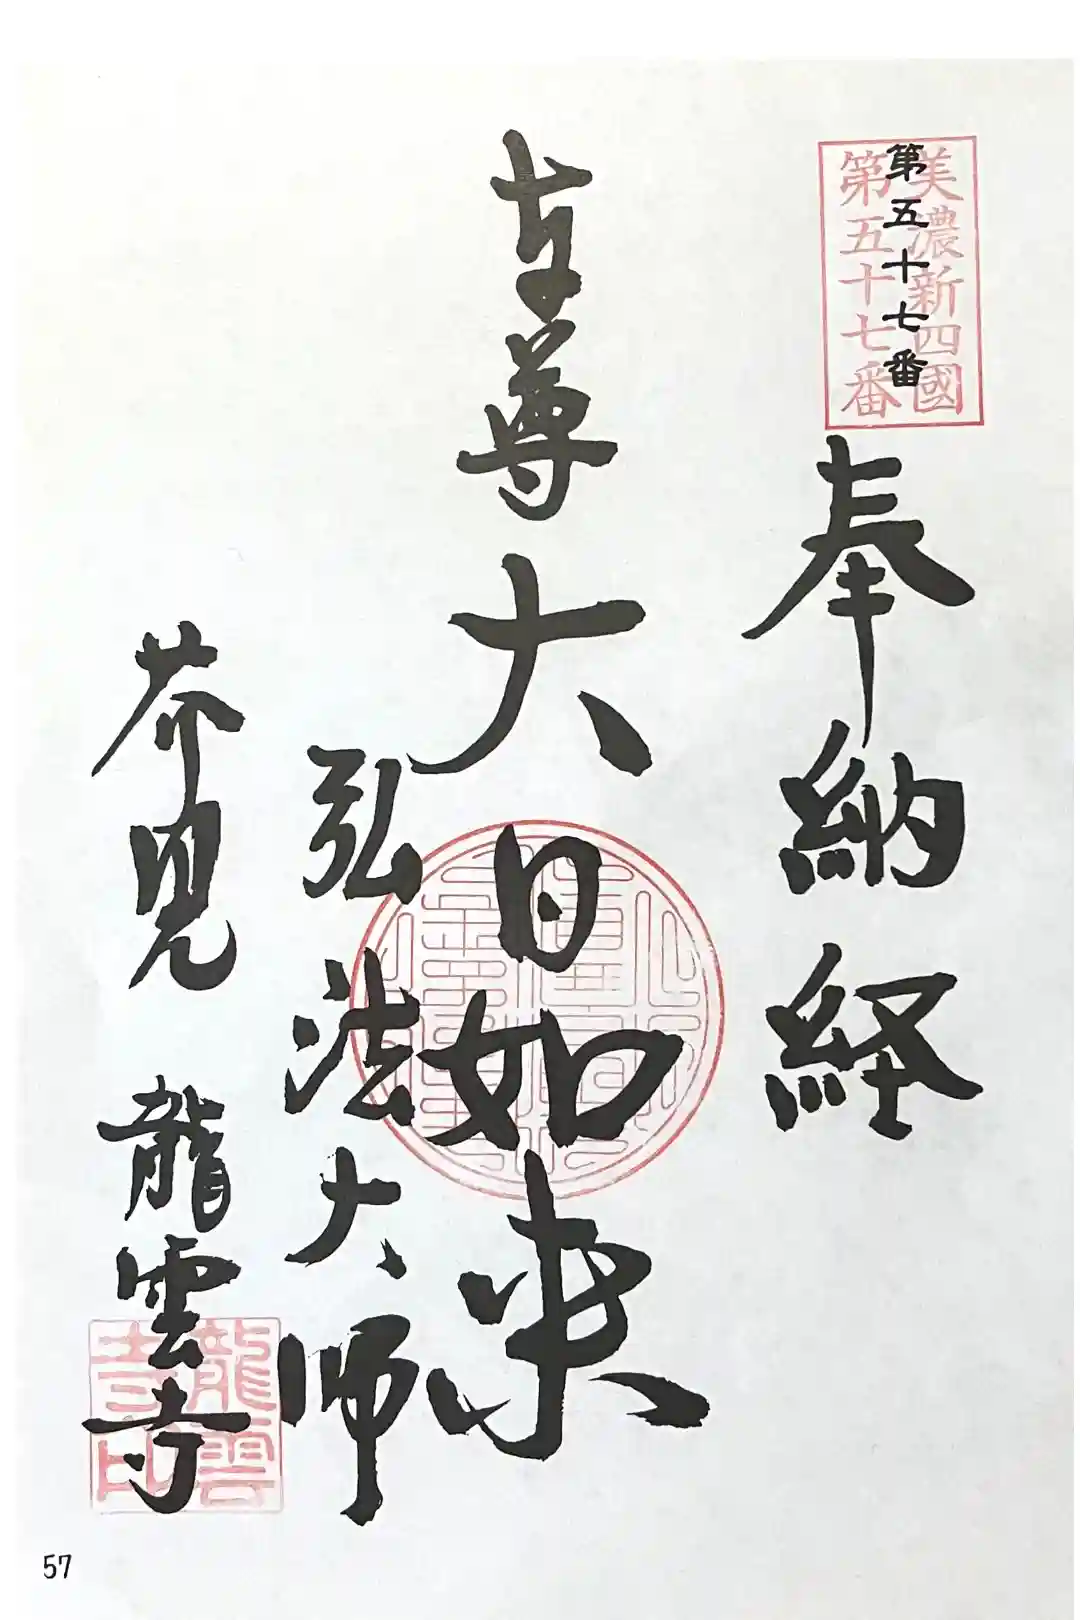 美濃新四國
第五十七番
第五十七番
奉納経
本尊大日如来
弘法大師
芥見 龍雲寺
龍雲
寺印
57